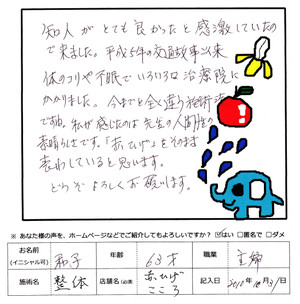 知人がとても良かったと感激していたの
で来ました。平成5年の交通故事以来
体のコリや不眠でいろいろな治療院に
かかりました。今までと全く違う施術法
ですね。私が感じたのは先生の人間性の
素晴らしさです。「赤ひげ」をそのまま
表わしていると思います。
どうぞよろしくお願いします。
※ あなた様の声を、ホームページなどでご紹介してもよろしいですか? ☑はい □匿名で □ダメ
お名前
(イニシャル可)
和子
年齢
63才
職業
主婦
施術名
整体
店舗名(必須)
赤ひげ
こころ
記入日
2010年10月31日